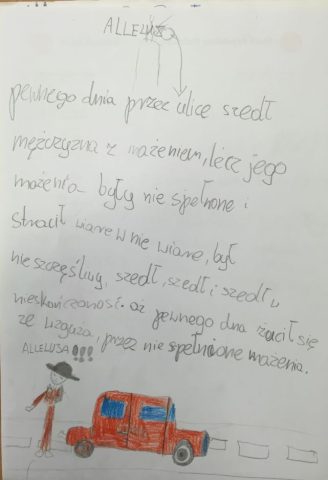 ALLELUJA
pewnego dnia przez ulicę szedł
mężczyzna z mażeniem, lecz jego
mażenia były nie spełnone i
stracił wiare w nie wiane, był
nieszczęśliwy, szedł, szedł i szedł w
nieskończoność. aż pewnego dna zucił się
ze wzguża, przez nie spełnione mażenia.
ALLELUJA!!!